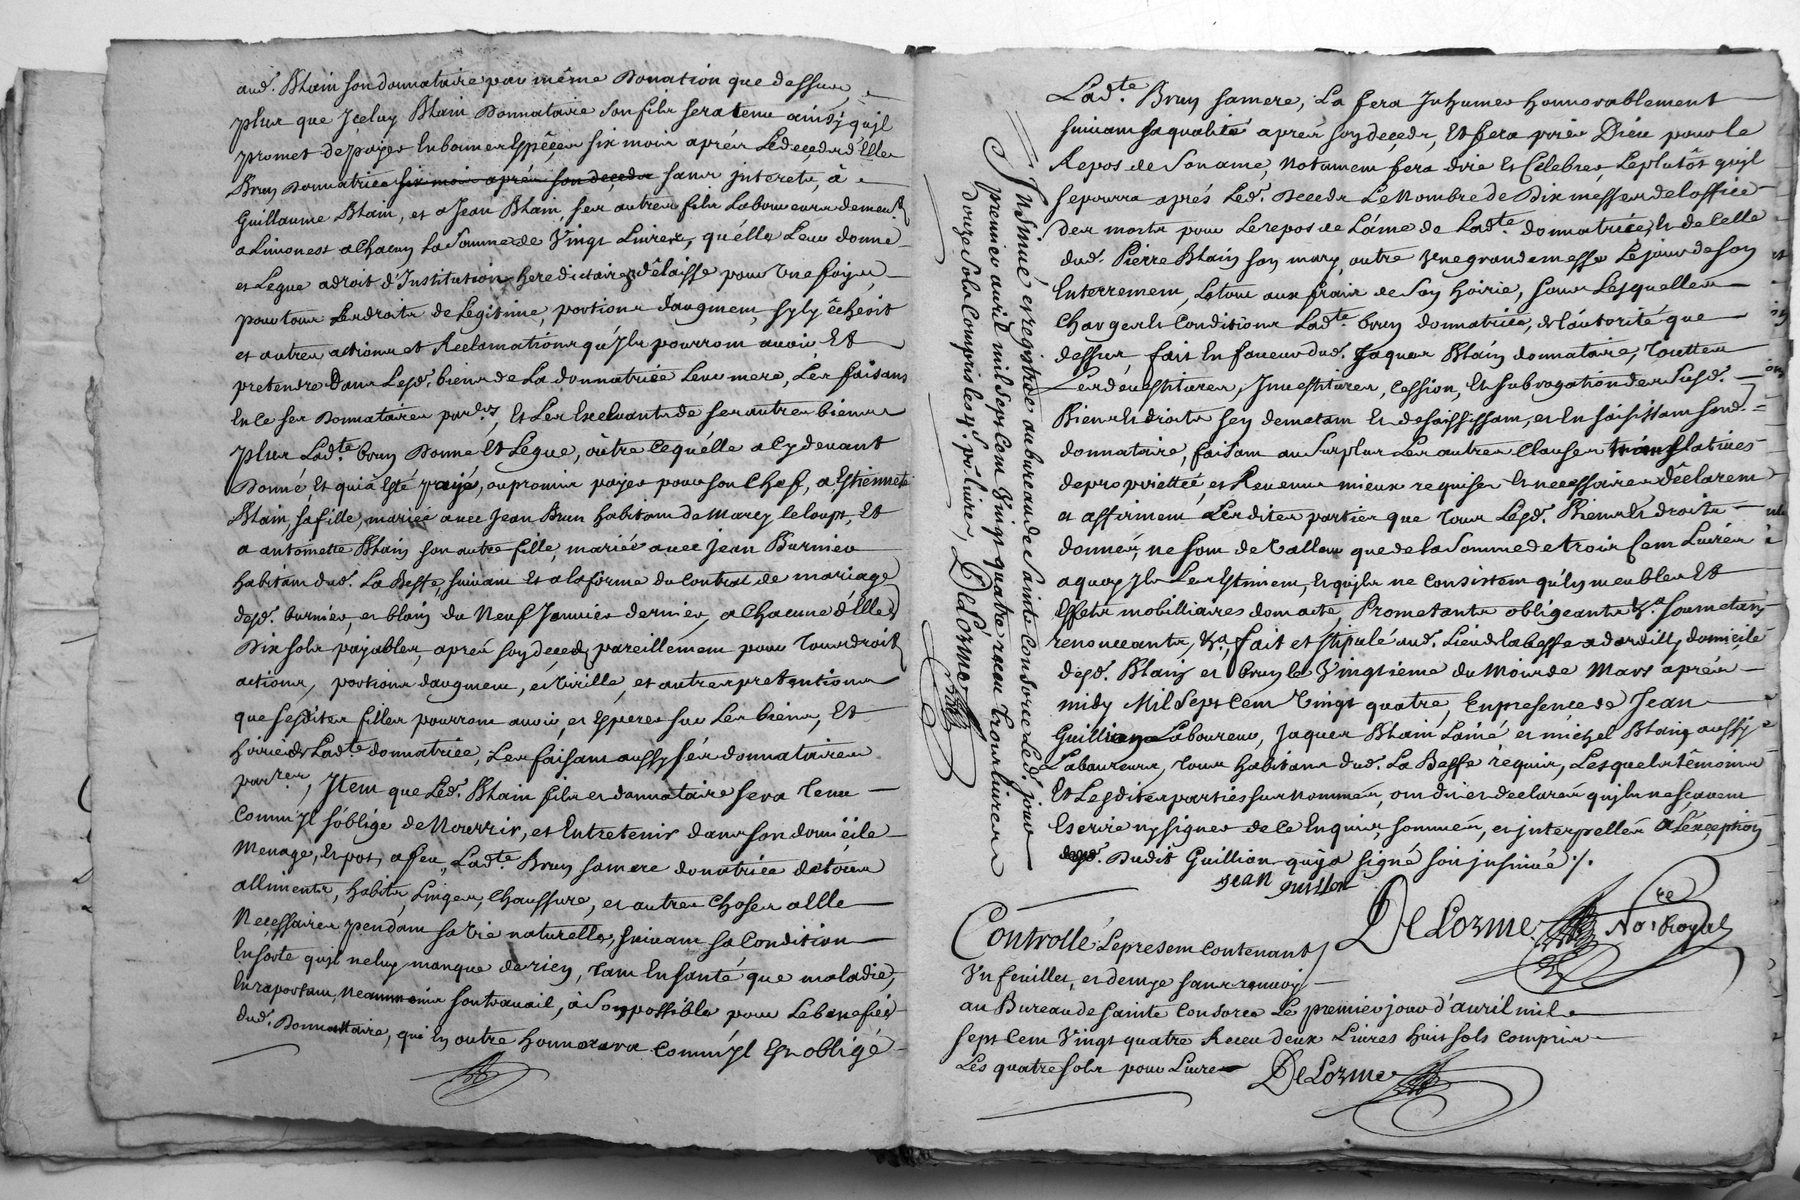 aud. Blain son donnataire par même Donation que dessus,
plus que Jceluy Blain Donnataire son fils sera tenu ainsy qu'jl
promet de payer En bonnes Espêçes six mois aprés Le deçeds d'Elle
Brun Donnatrice six mois aprés son deçeds sans jnterets, à
Guillaume Blain, et a Jean Blain, ses autres fils Laboureurs demeurt
a Limonest a Chacun La Somme de Vingt Livres, qu'élle Leur donne
et Legue a droit d'Institution hereditaire & délaisse pour Une foiys,
pour tous Les droits de Legitime, portions daugment, syly êcheoit
et autres actions et Reclamations qu'jls pourrom avoir Et
pretendre Dans Lesd. biens de La donnatrice Leur mere, Les faisans
En ce ses Donnataires par.ers, Et Les Excluants de ses autres biens
plus Lad.te brun Donne Et Legue, oûtre Cequ'élle a Cydevant
Donné, Et qui a Esté payé, ou promis payer pour son Chef, a Estiennete
Blain, sa fille, mariée avec Jean Brun habitant de Marcy le loups, Et
a antoinette Blain son autre fille, mariée avec Jean Burnier
habitant dud. La Beffe, suivant Et a la forme du Contrat de mariage
desd. burnier, et blain du Neuf Janvier dernier, a Chacune d'Elles
Dix sols payables, aprés son deceds pareillement pour Tous droits
actions, portions daugment, et Virille, et autres pretentions
que sesdites filles pourrom avoir, et Esperer sur Les biens, Et
hoirie de Lad.te donnatrice, Les faisant aussy sés donnataires
par.res, Jtem que Led. Blain fils et donnataire sera tenu
Comm'jl s'oblige de Nourrir, et Entretenir dans son domicile
Menage, Et pot, a feu, Lad.te Brun sa mere donatrice de tous
alliments, habits, Linges, Chaussure, et autres Choses a Elle
Necessaires pendant sa vie naturelle, suivant sa Condition
Ensorte qu'jl ne luy manque de rien, tant En santé que maladie,
En raportant neanmoins son travail, à son possible pour Le benefice
dud. Donnattaire, qui En outre honnorera Comm'jl Est obligé
Insinué et registré au bureau de Sainte Consorce Le d. jour
premier avril mil sept Cent Vingt quatre receu trois livres
douze sols Compris les 4 s. po.r livre, DeLorme
Lad.te Brun sa mere, La fera Jnhumer honnorablement
suivant sa qualité aprés son deçeds, Et fera prier Dieu pour le
Repos de Son ame, Notament fera dire Et Celebrer, Le plutôt qu'jl
se pourra aprés Led. Deceds Le Nombre de Dix messes de l'office
des morts pour Le repos de L'âme de Lad.te donnatrice, Et de Celle
dud. Pierre Blain son mary, outre Vne grande messe Le jour de son
Enterrement, Le tout aux frais de Son hoirie, sous Lesquelles
Charges Et Conditions Lad.te brun donnatrice, de l'autorité que
dessus fait En faveur dud. Jaques Blain donnataire, Touttes
Les devestitures, Jnvestitures, Cession, Et subrogation des Susd.
Biens Et droits s'en demetant Et desaisissant, et En saisissant sond.
donnataire, faisant au Surplus Les autres Clauses translatives
de propriettée, et Revenus mieux requises Et necessaires Déclarent
et affirment Lesdites parties que Tous Lesd. Biens Et droits
donnés, ne sont de Valleur que de la Somme de trois Cent Livres
a quoy Jls Les Estiment, Et qujls ne Consistent qu'En meubles Et
Effets mobilliaires dont acte, Prometants obligeants &.a soumetans
renonceants, &.a fait et stipulé aud. Lieu de la beffe a dardilly domicile
desd. Blain et brun le Vingtieme du Mois de Mars aprés
midy Mil Sept Cent Vingt quatre, En presence de Jean
Guillion Laboureur, Jaques Blain L'ainé et michel Blain aussy
Laboureurs, tous habitans dud. La Beffe requis, Lesquels témoins
Et Lesdites parties sur Nommées, ont dit et declaré qujls ne sçavent
Escrire ny signer de ce Enquis, sommés, et jnterpellés a L'exception
Dudit Guillion qui a signé soit jnsinué ./.
Jean guillon
DeLorme No.re Royal
Controllé Le present contenant
Vn feuillet, et demye sans renvoy
au Bureau de sainte Consorce Le premier jour d'avril mil
sept Cent Vingt quatre Receu deux Livres huit sols compris
Les quatre sols pour Livre DeLorme